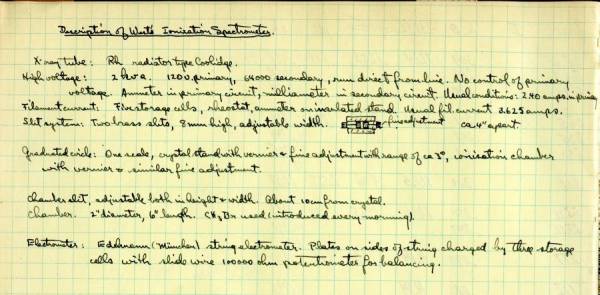 Description of Wear's Ionization Spectrometer.
X-ray tube: Rh radiator type Coolidge.
High voltage: 2 kva. 120 v. primary, 64000 secondary, run direct from line. No control of primary
voltage. Ammeter in primary circuit, milliammeter in secondary circuit. Usual conditions: 2.40 amps. in primary
Filament current: Five storage cells, rheostat, ammeter on insulated stand. Usual fil. current 3.625 amps.
Slit system: Two brass slits, 8 mm high, adjustable width. fine adjustment ca 4" apart.
Graduated circle: One scale, crystal stand with vernier + fine adjustment with range of ca 3°, ionisation chamber
with vernier + similar fine adjustment.
Chamber slit, adjustable both in height + width. About 10 cm from crystal.
Chamber. 2" diameter, 6" length. CH3Br used (introduced every morning)
Electrometer: Edelmann (München) string electrometer. Plates on sides of string charged by three storage
cells with slide wire 100000 ohm potentiometer for balancing.